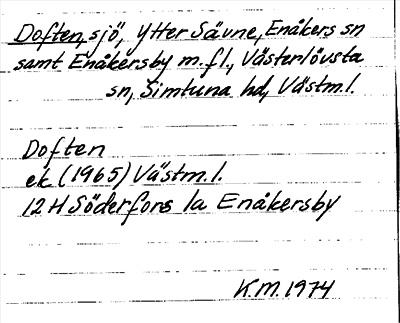 Doften, sjö, Ytter Sävne, Enåkers sn
samt Enåkersby m.fl., Västerlövsta
sn, Simtuna hd, Västm.l.
Doften
ek (1965) Västm.l.
12 H Söderfors 1a Enåkersby
K.M. 1974